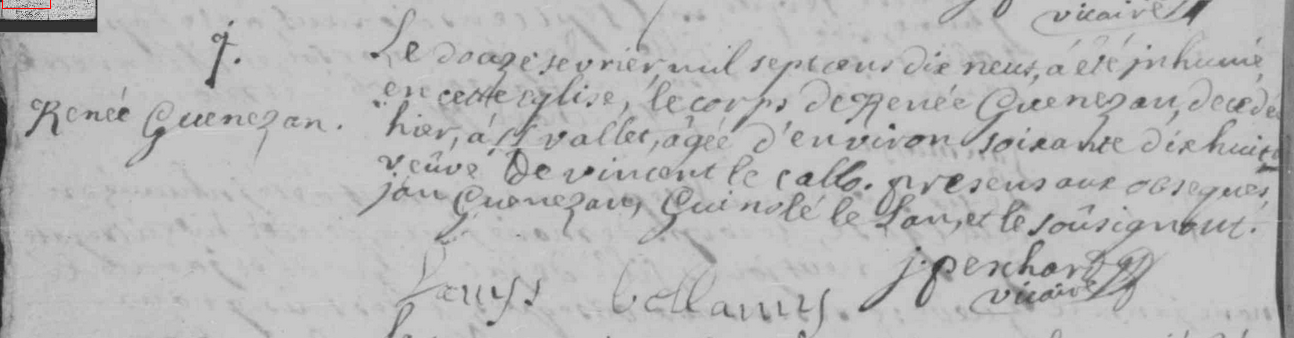 vicaire
7.
Le douze fevrier mil sept cens dix neuf, a été inhumé
Renée Guenezan.
en cette eglise, le corps de Renée Guenezan, decedé
hier, á valler, âgée d'environ soixante dix huict
veûve De vincent le callo. presens aux obseques
jan Guenezan, Guinolé le Lan, et le soûsignant.
j: perchard
vicaire
Louyss bellamy